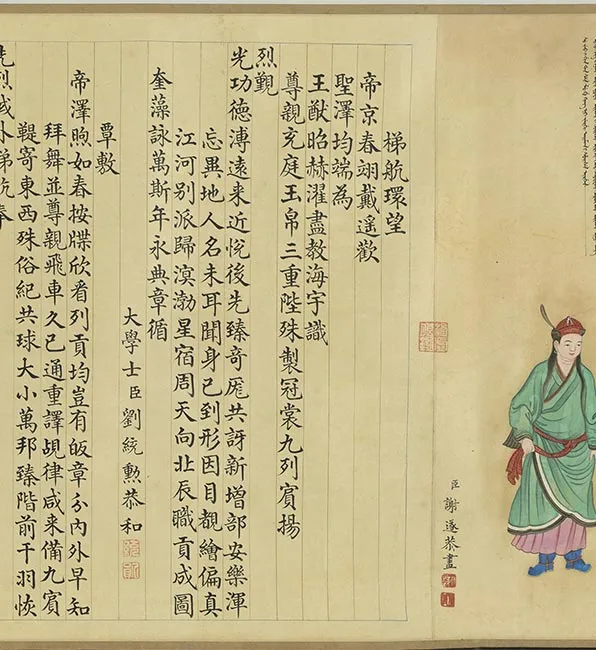 臣謝遂恭畫
梯航環望
帝京春翊戴遥歡
聖澤均端為
王猷昭赫濯盡教海宇識
尊親充庭玉帛三重陛殊製冠裳九列賓揚
烈覲
光功德溥遠来近悅後先臻竒厖共訝新增部安樂渾
忘異地人名未耳聞身已到形因目覩繪偏真
江河别派歸溟渤星宿周天向北辰職貢成圖
奎藻詠萬斯年永典章循
大學士臣劉統勲恭和
覃敷
帝澤煦如春按牒欣看列貢均豈有皈章分內外早知
拜舞並尊親飛車久已通重譯覘律咸来備九賓
鞮寄東西殊俗紀共球大小萬邦臻階前干羽恢
先烈域外梯航奉